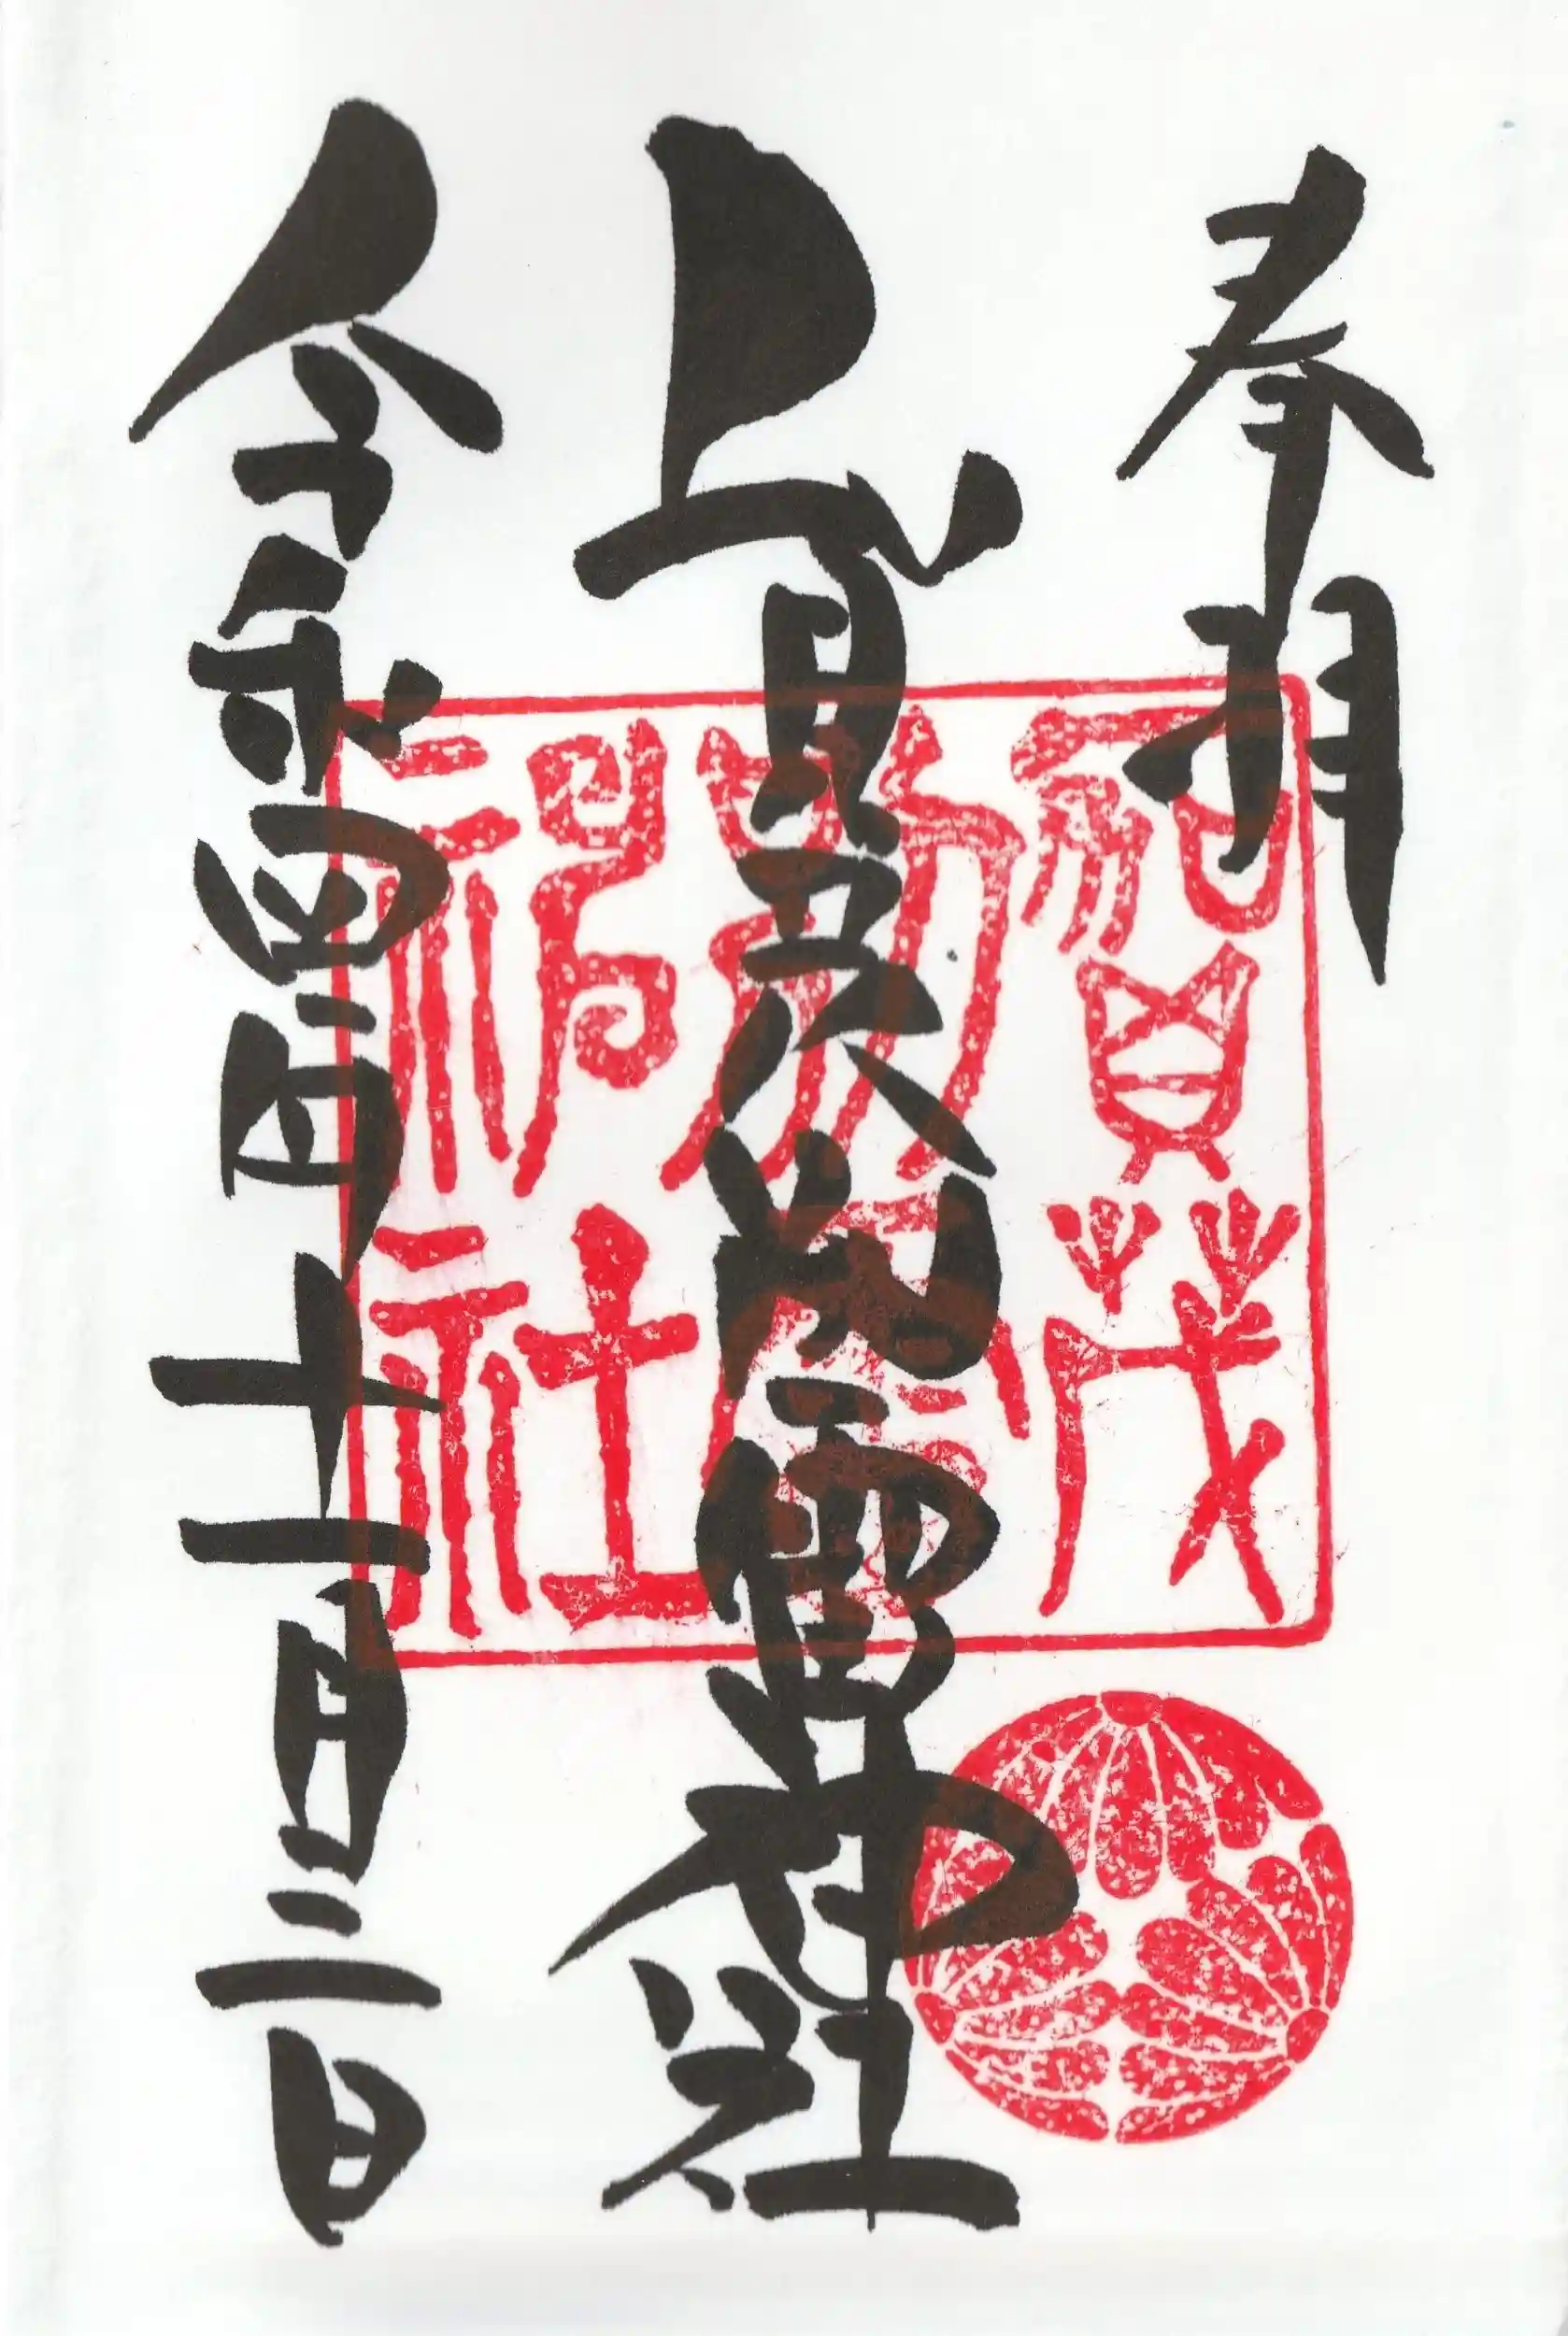 奉拝
上賀雷神社
令和四年十一月三日
賀茂
別雷
神社